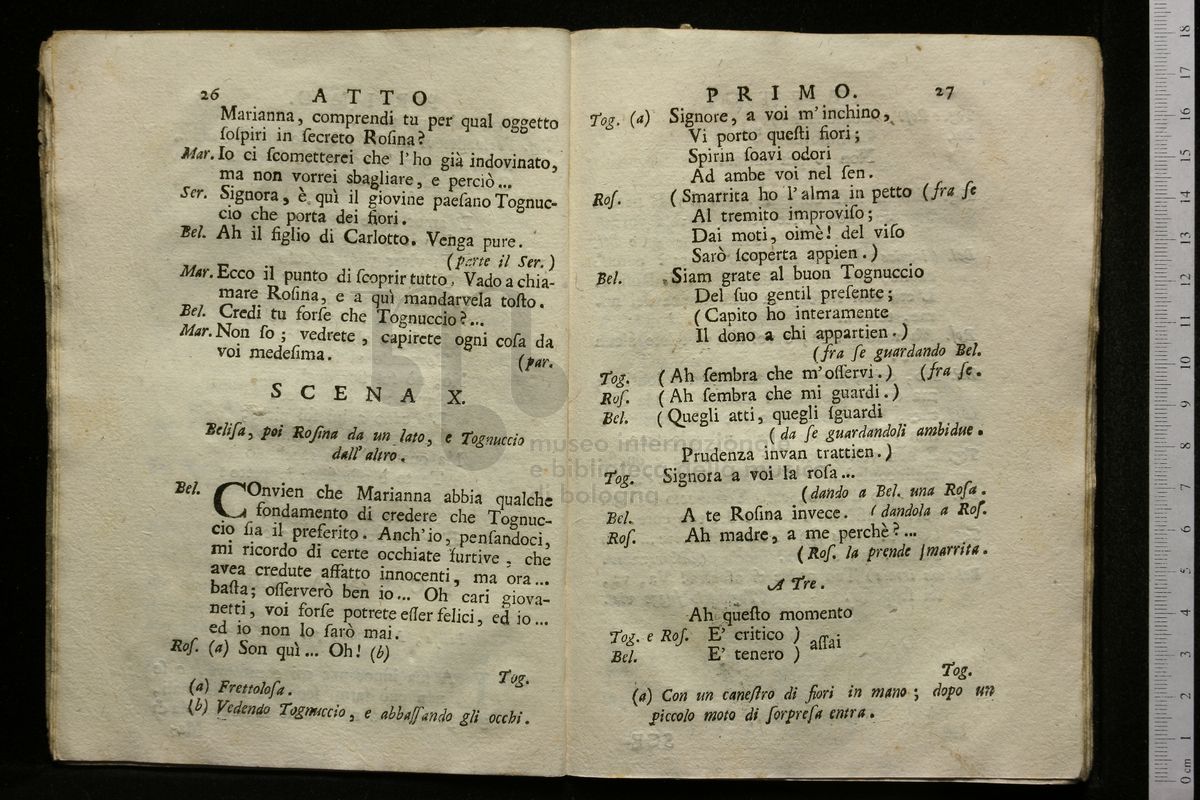 26 ATTO
Marianna, comprendi tu per qual oggetto
ſoſpiri in ſecreto Roſina?
Mar. Io ci ſcometterei che l'ho già indovinato,
ma non vorrei sbagliare, e perciò...
Ser. Signora, è quì il giovine paeſano Tognuc-
cio che porta dei fiori.
Bel. Ah il figlio di Carlotto. Venga pure.
(parte il Ser.)
Mar. Ecco il punto di ſcoprir tutto. Vado a chia-
mare Roſina, e a quì mandarvela toſto.
Bel. Credi tu forſe che Tognuccio?...
Mar. Non ſo; vedrete, capirete ogni coſa da
voi medeſima. (par.
SCENA X.
Beliſa, poi Roſina da un lato, e Tognuccio
dall' altro.
Bel. COnvien che Marianna abbia qualche
fondamento di credere che Tognuc-
cio ſia il preferito. Anch'io, penſandoci,
mi ricordo di certe occhiate furtive, che
avea credute affatto innocenti, ma ora...
baſta; oſſerverò ben io... Oh cari giova-
netti, voi forſe potrete eſſer felici, ed io...
ed io non lo ſarò mai.
Roſ. (a) Son quì... Oh! (b)
Tog.
(a) Frettoloſa.
(b) Vedendo Tognuccio, e abbaſſando gli occhi.
PRIMO. 27
Tog. (a) Signore, a voi m'inchino,
Vi porto queſti fiori;
Spirin ſoavi odori
Ad ambe voi nel ſen.
Roſ. (Smarrita ho l'alma in petto (fra ſe
Al tremito improviſo;
Dai moti, oimè! del viſo
Sarò ſcoperta appien.)
Bel. Siam grate al buon Tognuccio
Del ſuo gentil preſente;
(Capito ho interamente
Il dono a chi appartien.)
(fra ſe guardando Bel.
Tog. (Ah ſembra che m'oſſervi.) (fra ſe.
Roſ. (Ah ſembra che mi guardi.)
Bel. (Quegli atti, quegli ſguardi
(da ſe guardandoli ambidue.
Prudenza invan trattien.)
Tog. Signora a voi la roſa...
(dando a Bel. una Roſa.
Bel. A te Roſina invece. (dandola a Roſ.
Roſ. Ah madre, a me perchè?...
(Roſ. la prende ſmarrita.
A Tre.
Ah queſto momento
Tog. e Roſ. E' critico )
Bel. E' tenero ) aſſai
Tog.
(a) Con un caneſtro di fiori in mano; dopo un
piccolo moto di ſorpreſa entra.
museo internazionale
e biblioteca della musica
di bologna
0 cm 1 2 3 4 5 6 7 8 9 10 11 12 13 14 15 16 17 18